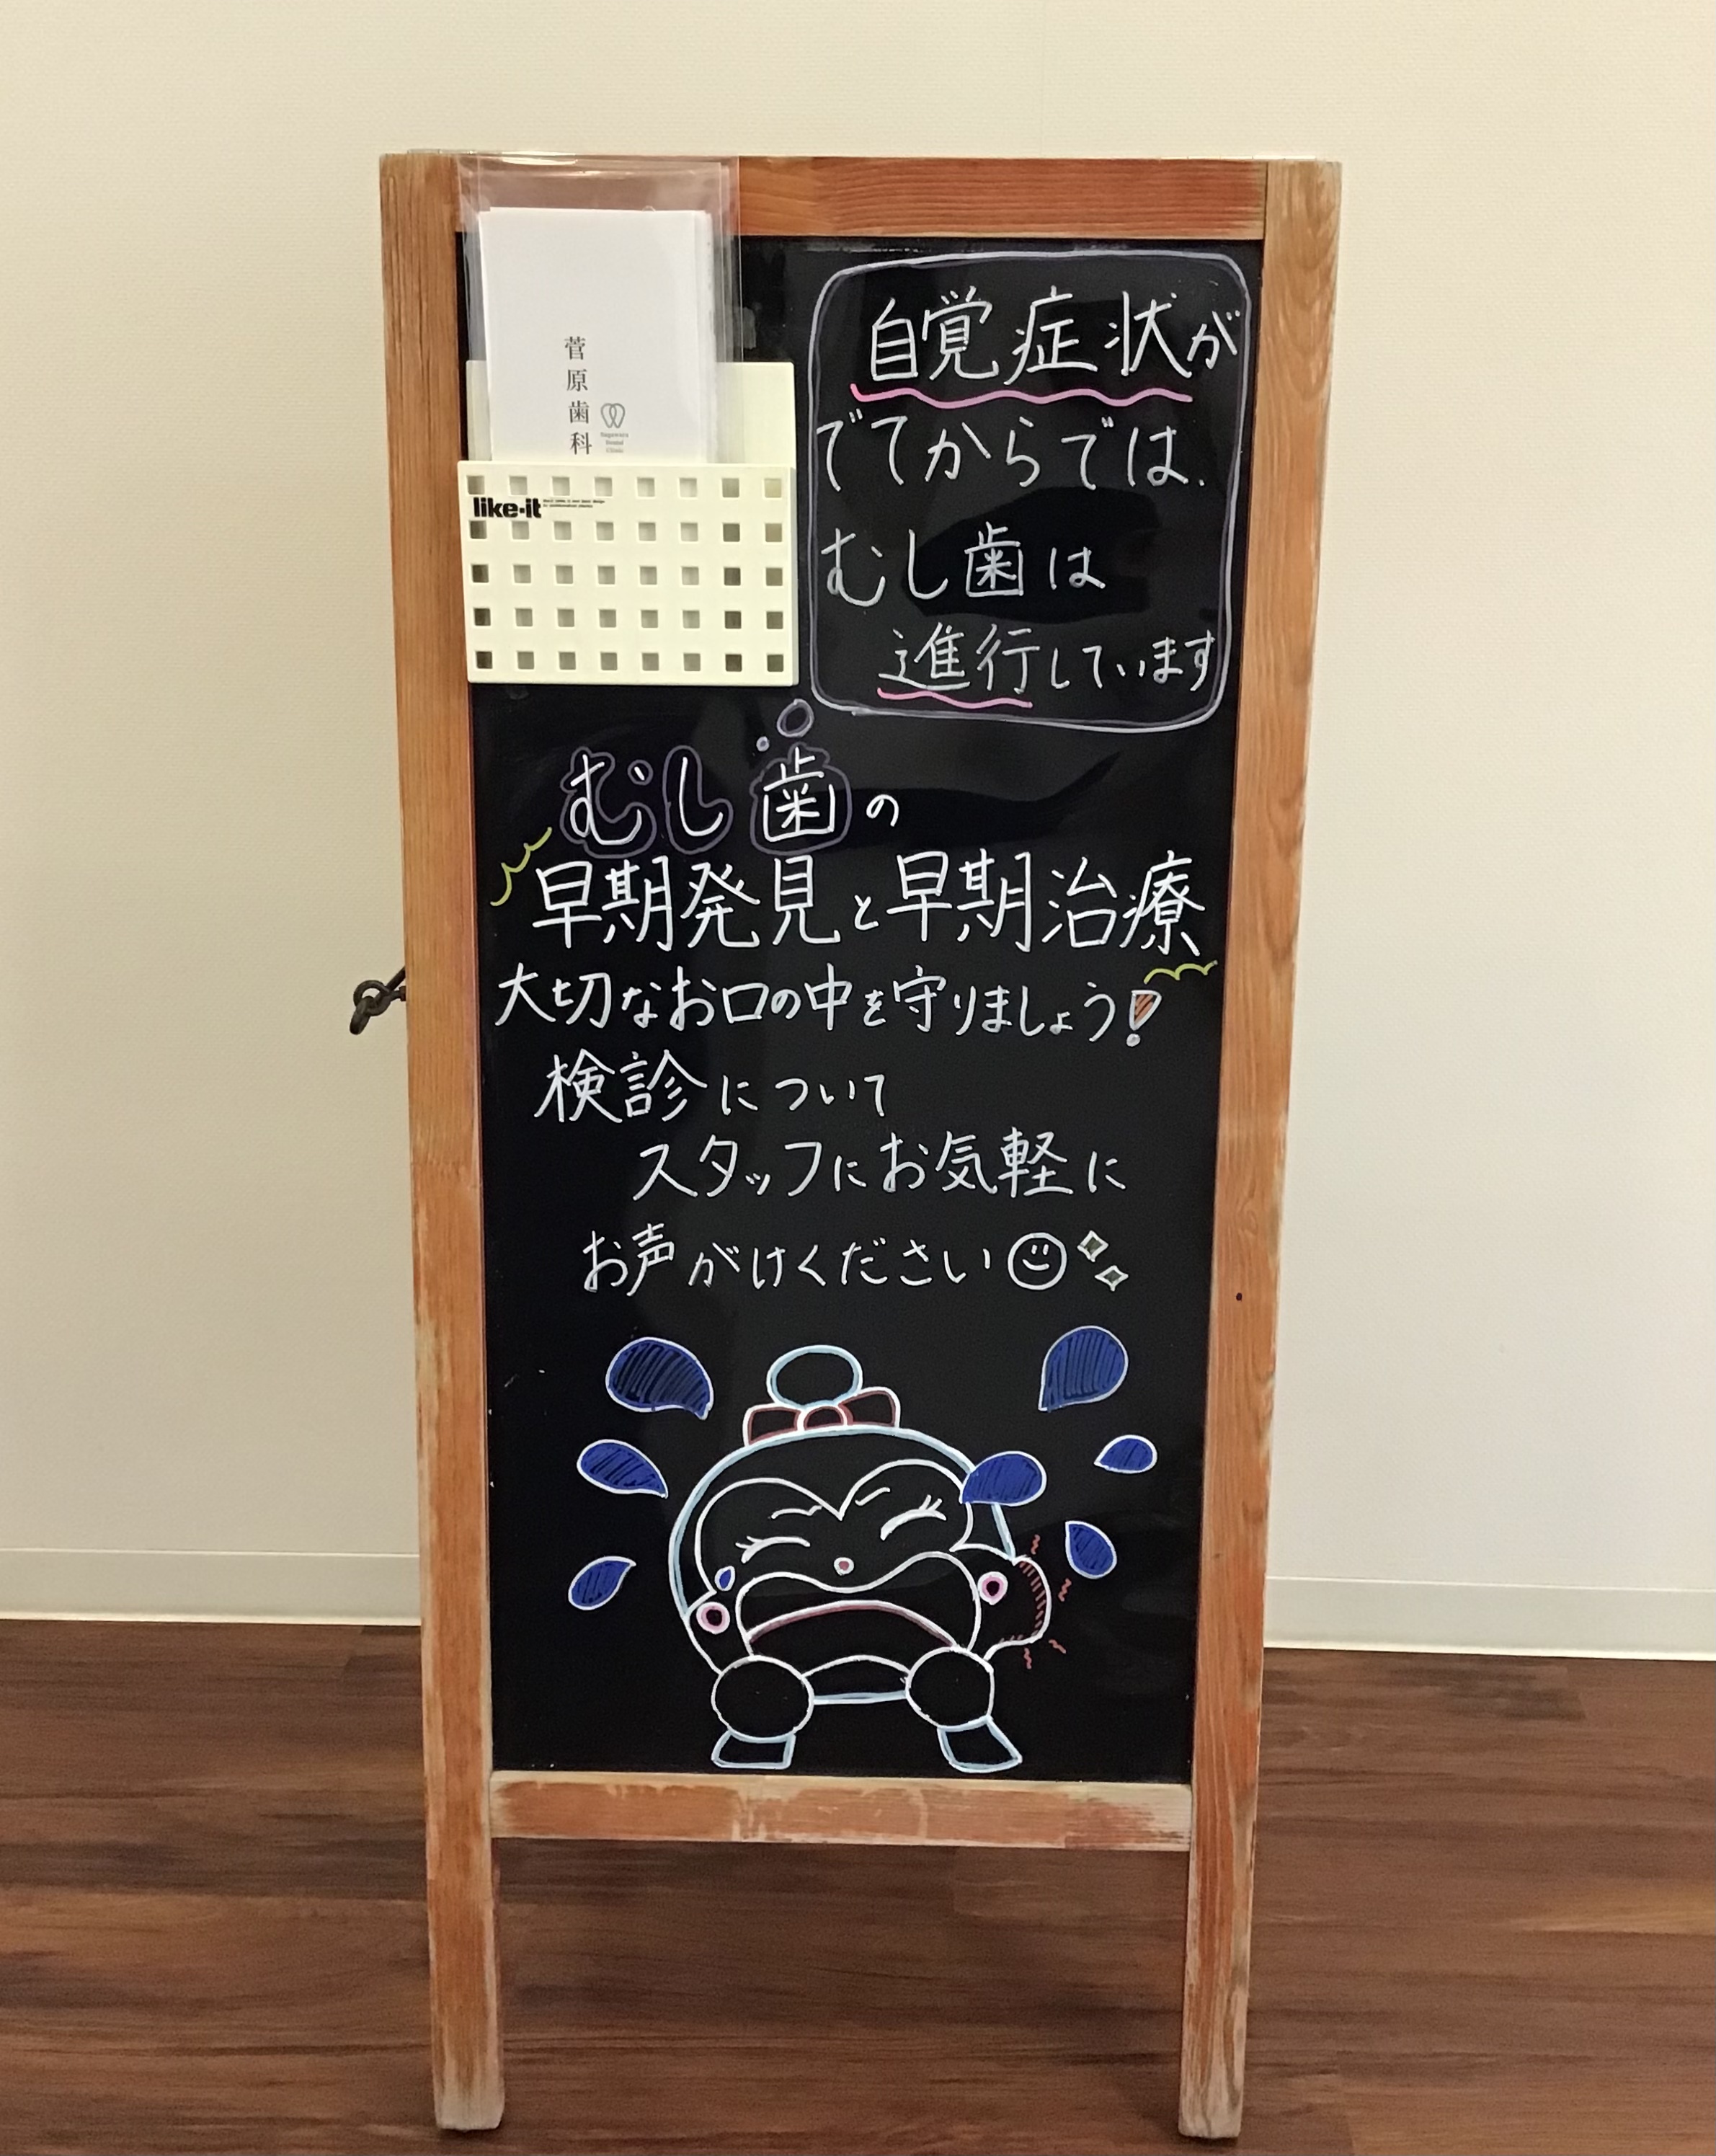 自覚症状が
でてからでは、
むし歯は
進行しています
菅原歯科
Sugawara
Dental
Clinic
like-it
むし歯の
早期発見と早期治療
大切なお口の中を守りましょう!
検診について
スタッフにお気軽に
お声がけください